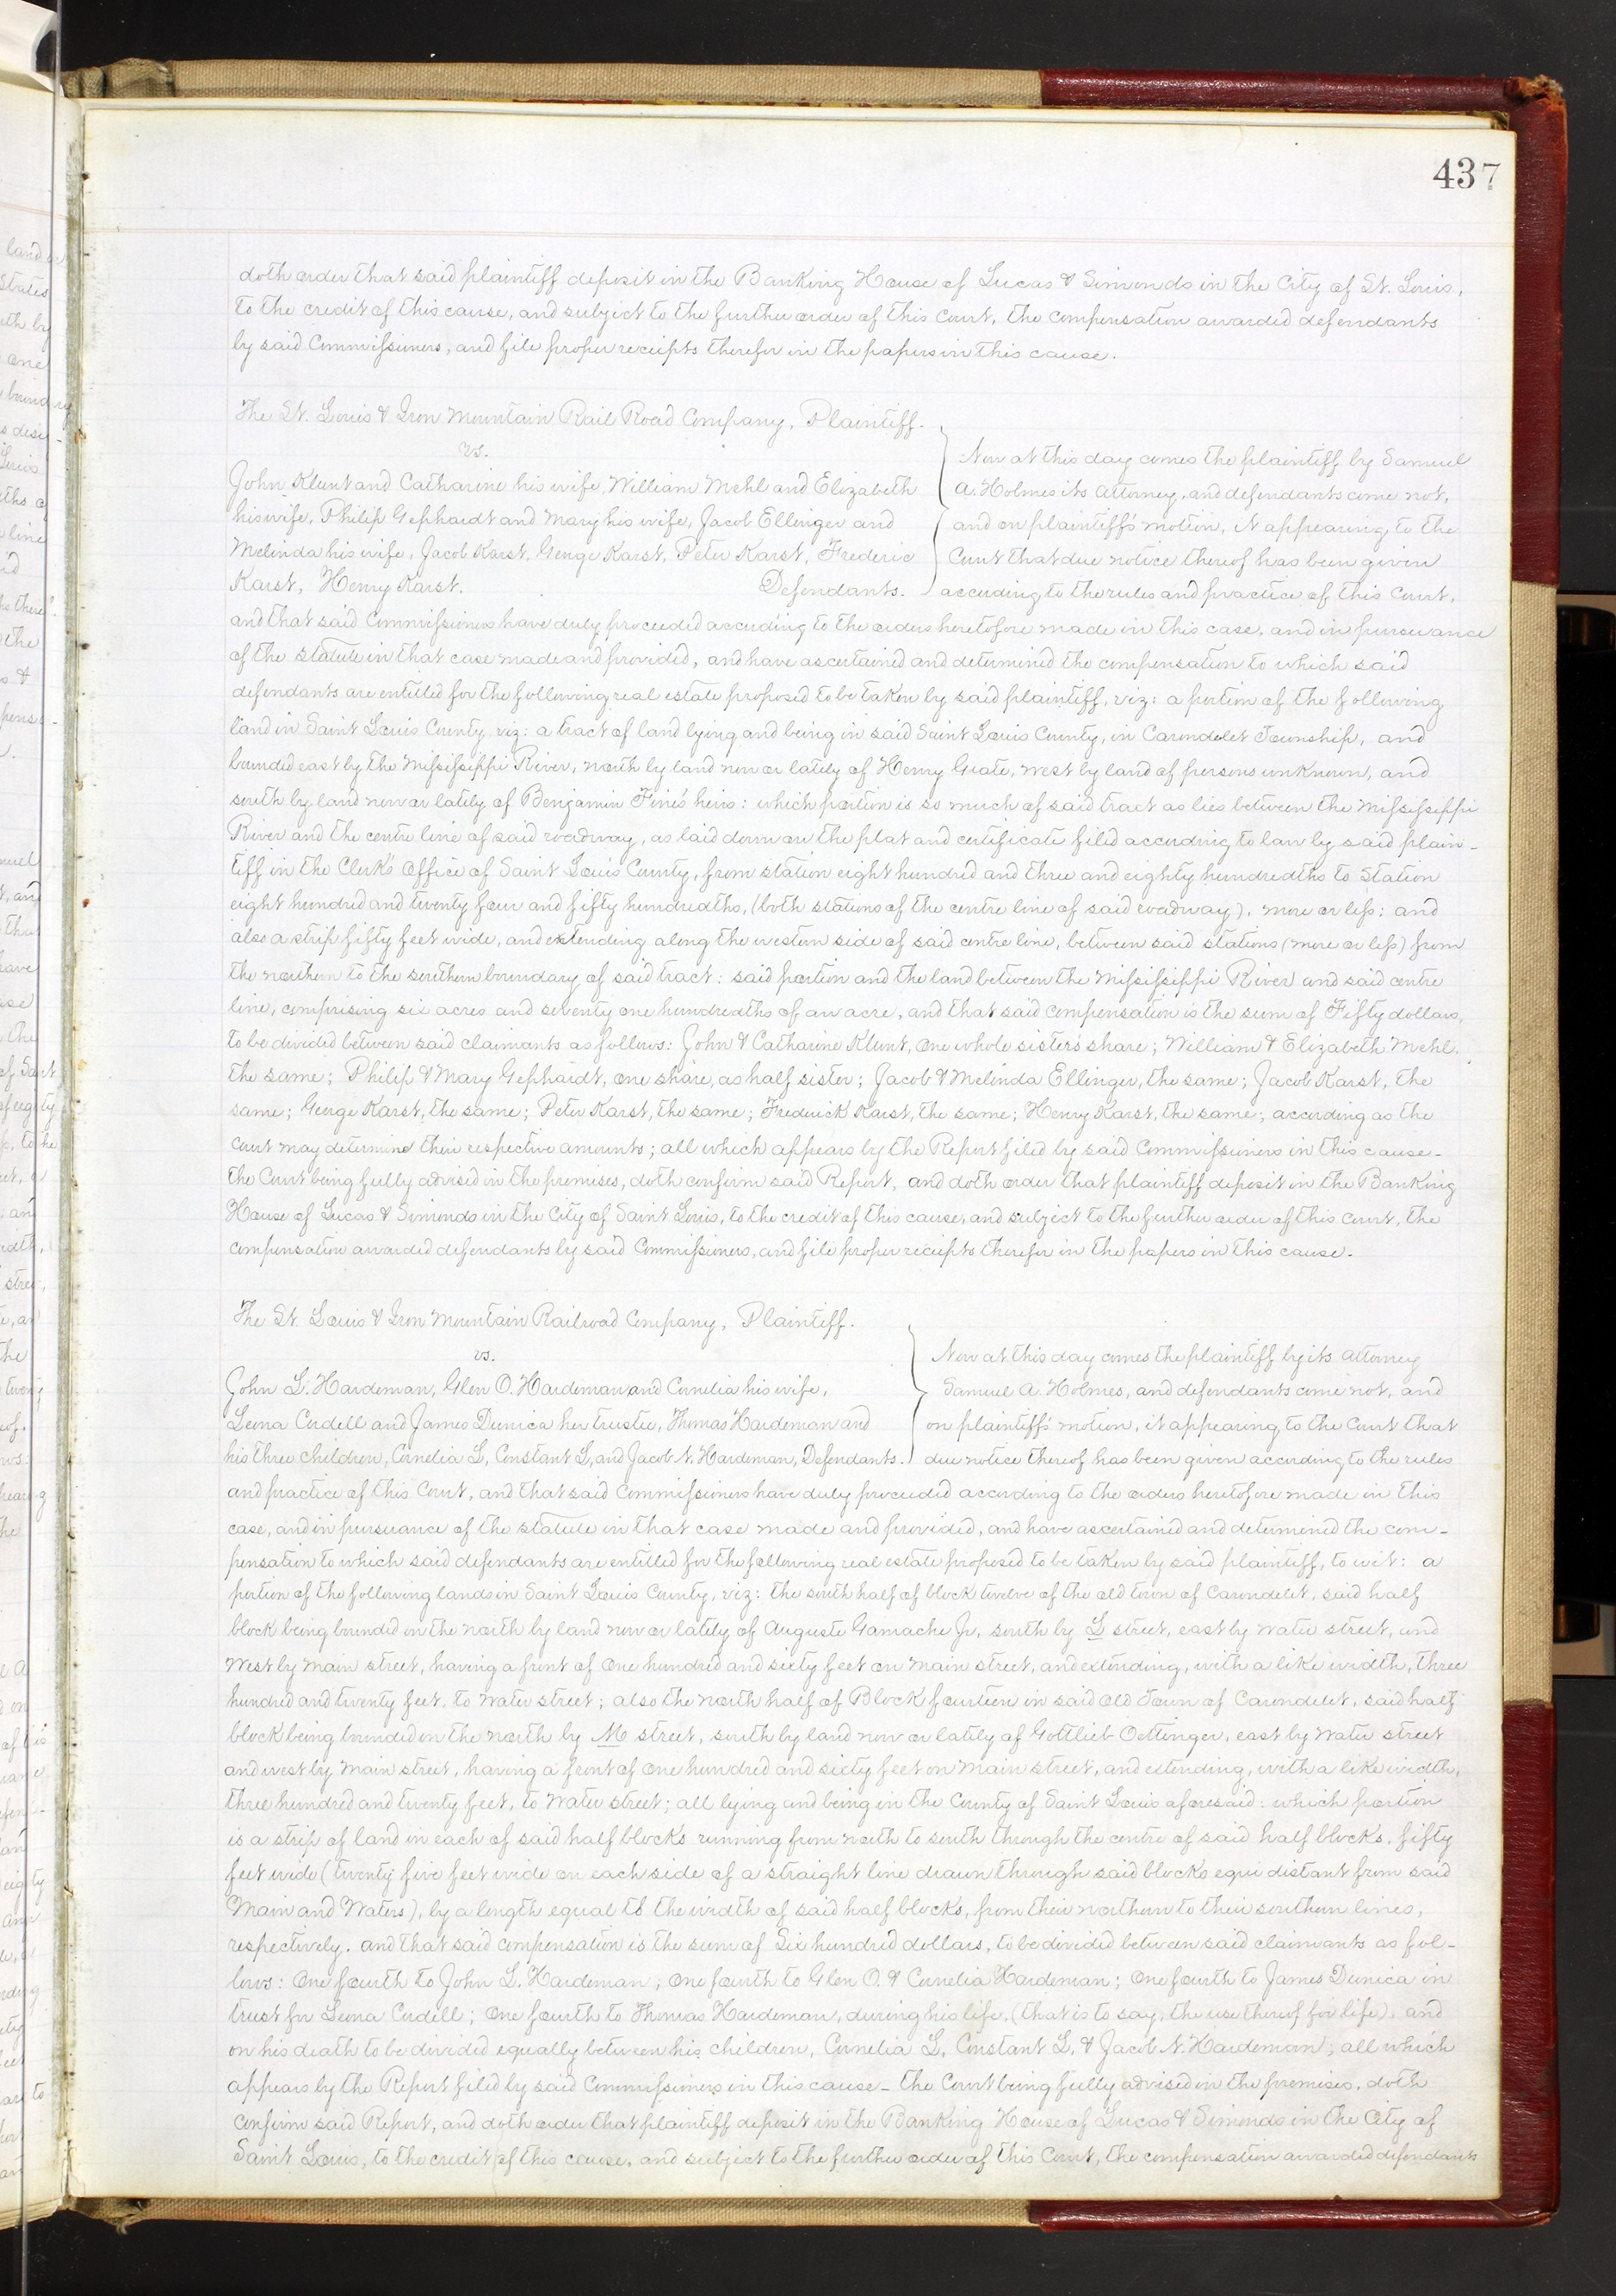 437
doth order that said plaintiff deposit in the Banking House of Lucas & Simonds in the City of St. Louis,
to the credit of this cause, and subject to the further order of this Court, the compensation awarded defendants
by said Commissioners, and file proper receipts therefor in the papers in this cause.
The St. Louis & Iron Mountain Rail Road Company, Plaintiff.
vs.
John Klunt and Catharine his wife, William Mehl and Elizabeth
his wife, Philip Gephardt and Mary his wife, Jacob Ellinger and
Melinda his wife, Jacob Karst, George Karst, Peter Karst, Frederic
Karst, Henry Karst. Defendants.
Now at this day comes the plaintiff by Samuel
A. Holmes its attorney, and defendants come not,
and on plaintiff's motion, it appearing to the
Court that due notice thereof has been given
according to the rules and practice of this Court,
and that said Commissioners have duly proceeded according to the orders heretofore made in this case, and in pursuance
of the statute in that case made and provided, and have ascertained and determined the compensation to which said
defendants are entitled for the following real estate proposed to be taken by said plaintiff, viz: a portion of the following
land in Saint Louis County, viz: a tract of land lying and being in said Saint Louis County, in Carondelet Township, and
bounded east by the Mississippi River, north by land now or lately of Henry Grate, west by land of persons unknown, and
south by land now or lately of Benjamin Fine's heirs: which portion is so much of said tract as lies between the Mississippi
River and the centre line of said roadway, as laid down on the plat and certificate filed according to law by said plain-
tiff in the Clerk's Office of Saint Louis County, from station eight hundred and three and eighty hundredths to Station
eight hundred and twenty four and fifty hundredths, (both stations of the centre line of said roadway), more or less: and
also a strip fifty feet wide, and extending along the western side of said centre line, between said stations (more or less) from
the northern to the southern boundary of said tract: said portion and the land between the Mississippi River and said centre
line, comprising six acres and seventy one hundredths of an acre, and that said compensation is the sum of Fifty dollars,
to be divided between said claimants as follows: John & Catharine Klunt, one whole sister's share; William & Elizabeth Mehl,
the same; Philip & Mary Gephardt, one share, as half sister; Jacob & Melinda Ellinger, the same; Jacob Karst, the
same; George Karst, the same; Peter Karst, the same; Frederick Karst, the same; Henry Karst, the same; according as the
Court may determine their respective amounts; all which appears by the Report filed by said Commissioners in this cause-
the Court being fully advised in the premises, doth confirm said Report, and doth order that plaintiff deposit in the Banking
House of Lucas & Simonds in the City of Saint Louis, to the credit of this cause, and subject to the further order of this Court, the
compensation awarded defendants by said Commissioners, and file proper receipts therefor in the papers in this cause.
The St. Louis & Iron Mountain Railroad Company, Plaintiff.
vs.
John L. Hardeman, Glen O. Hardeman and Cornelia his wife,
Leona Cordell and James Dunica her trustee, Thomas Hardeman and
his three children, Cornelia L, Constant L, and Jacob N. Hardeman, Defendants.
Now at this day comes the plaintiff by its attorney
Samuel A. Holmes, and defendants come not, and
on plaintiff's motion, it appearing to the Court that
due notice thereof has been given according to the rules
and practice of this Court, and that said Commissioners have duly proceeded according to the orders heretofore made in this
case, and in pursuance of the statute in that case made and provided, and have ascertained and determined the com-
pensation to which said defendants are entitled for the following real estate proposed to be taken by said plaintiff, to wit: a
portion of the following lands in Saint Louis County, viz: the south half of block twelve of the old town of Carondelet, said half
block being bounded on the north by land now or lately of Auguste Gamache Jr, south by L street, east by Water street, and
West by Main street, having a front of one hundred and sixty feet on Main street, and extending, with a like width, three
hundred and twenty feet, to Water street; also the north half of Block fourteen in said Old Town of Carondelet, said half
block being bounded on the north by M street, south by land now or lately of Gottlieb Oettinger, east by Water street
and west by Main street, having a front of one hundred and sixty feet on Main street, and extending, with a like width,
three hundred and twenty feet, to Water street; all lying and being in the County of Saint Louis aforesaid: which portion
is a strip of land in each of said half blocks running from north to south through the centre of said half blocks, fifty
feet wide (twenty five feet wide on each side of a straight line drawn through said blocks equi distant from said
Main and Waters), by a length equal to the width of said half blocks, from their northern to their southern lines,
respectively. and that said compensation is the sum of Six hundred dollars, to be divided between said claimants as fol-
lows: One fourth to John L. Hardeman; one fourth to Glen O. & Cornelia Hardeman; One fourth to James Dunica in
trust for Leona Cordell; One fourth to Thomas Hardeman, during his life, (that is to say, the use thereof for life), and
on his death to be divided equally between his children, Cornelia L, Constant L, & Jacob N. Hardeman; all which
appears by the Report filed by said Commissioners in this cause- the Court being fully advised in the premises, doth
confirm said Report, and doth order that plaintiff deposit in the Banking House of Lucas & Simonds in the City of
Saint Louis, to the credit of this cause, and subject to the further order of this Court, the compensation awarded defendants